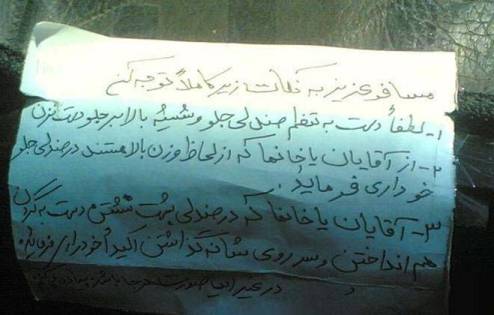 مسافر عزیز به نکات زیر کاملاً توجه کن
۱- لطفاً دست به تنظیم صندلی جلو و شیشه بالابر جلو دست نزن
۲- از آقایان یا خانمها که از لحاظ وزن بالا هستند در صندلی جلو
خودداری فرمایند.
۳- آقایان یا خانمها که در صندلی پشت نشستن دست به گردن
هم انداختن و سر روی شانه گذاشتن اکیداً خودداری فرمایند
در غیر اینصورت هر جا باشد پیاده